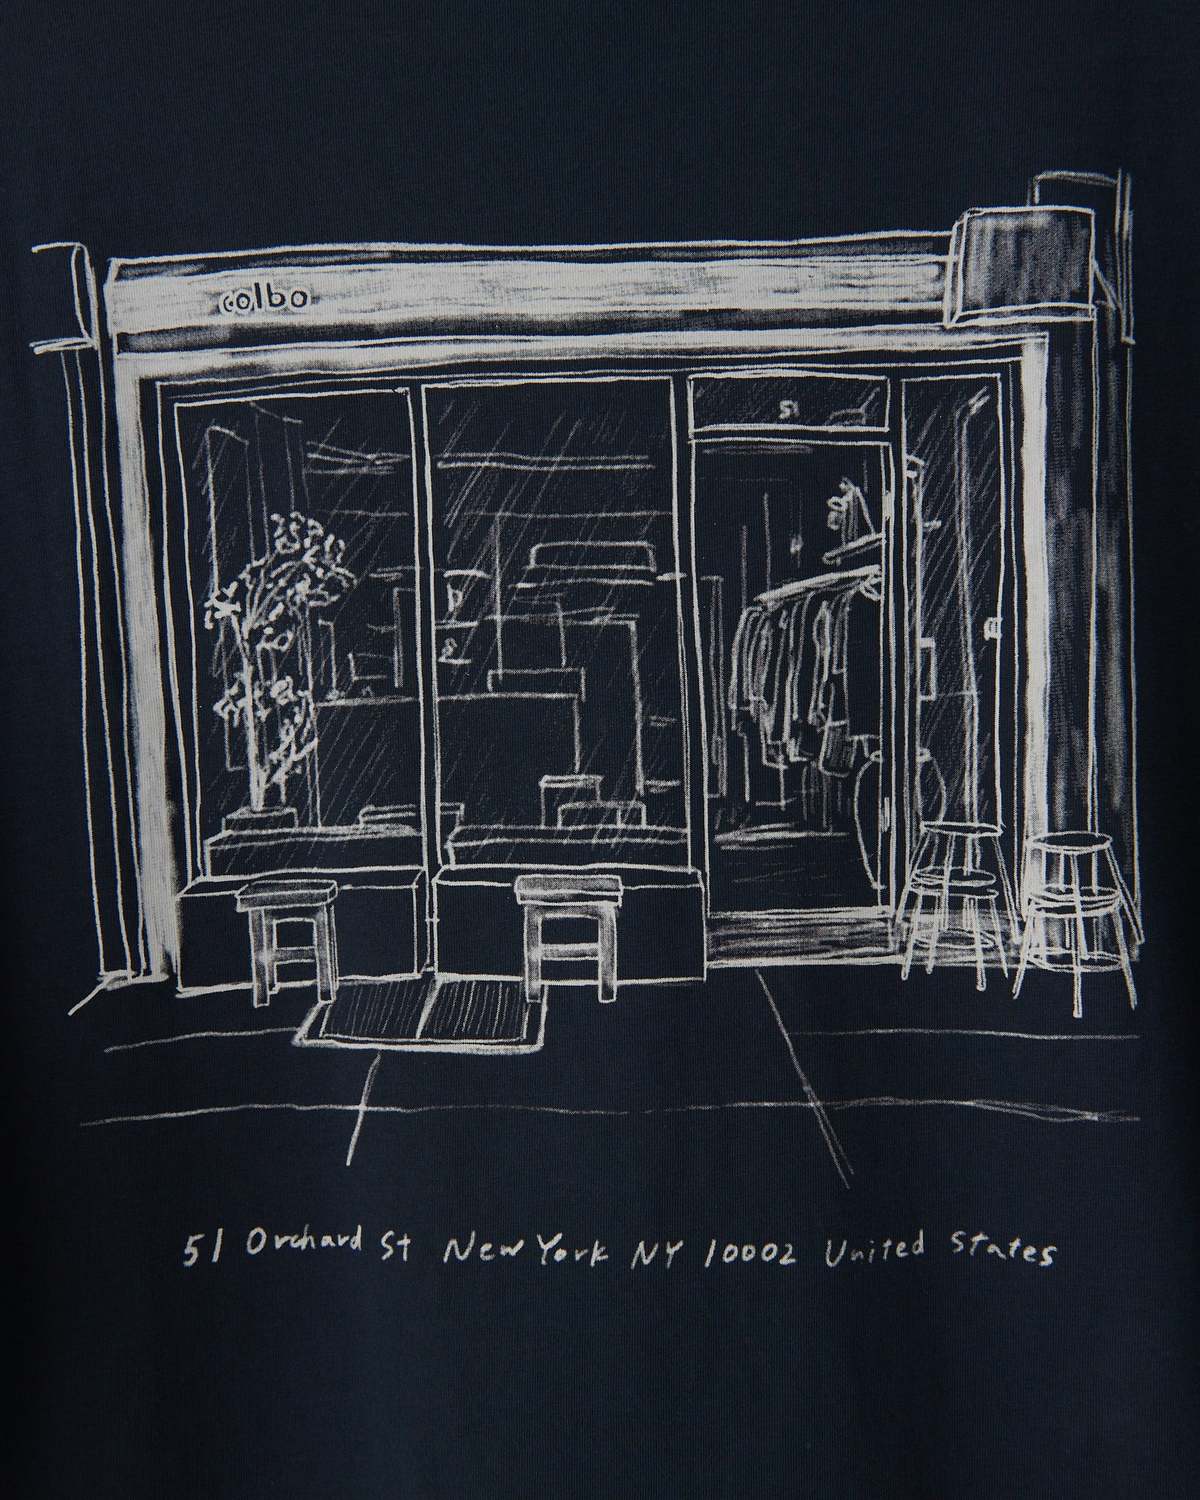 colbo
51
51 Orchard St New York NY 10002 United States